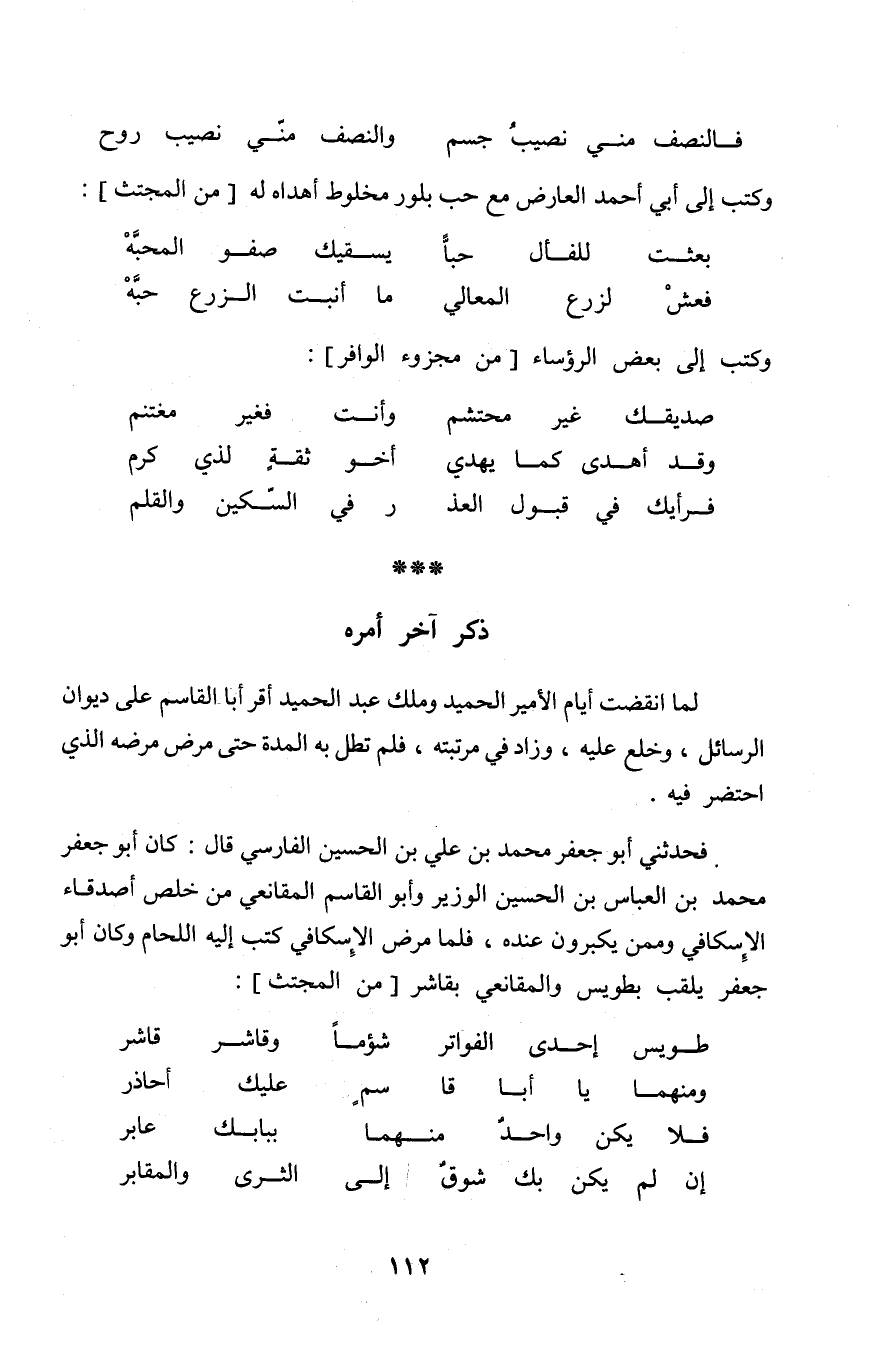 فالنصف مني نصيبُ جسم والنصف منّي نصيب روح
وكتب إلى أبي أحمد العارض مع حب بلور مخلوط أهداه له [ من المجتث ] :
بعثت للفأل حباً يسقيك صفو المحبَّهْ
فعشْ لزرع المعالي ما أنبت الزرع حبَّهْ
وكتب إلى بعض الرؤساء [ من مجزوء الوافر ] :
صديقك غير محتشم وأنت فغير مغتنم
وقد أهدى كما يهدي أخو ثقةٍ لذي كرم
فرأيك في قبول العذ ر في السّكين والقلم
***
ذكر آخر أمره
لما انقضت أيام الأمير الحميد وملك عبد الحميد أقر أبا القاسم على ديوان
الرسائل ، وخلع عليه ، وزاد في مرتبته ، فلم تطل به المدة حتى مرض مرضه الذي
احتضر فيه .
فحدثني أبو جعفر محمد بن علي بن الحسين الفارسي قال : كان أبو جعفر
محمد بن العباس بن الحسين الوزير وأبو القاسم المقانعي من خلص أصدقاء
الإسكافي وممن يكبرون عنده ، فلما مرض الإسكافي كتب إليه اللحام وكان أبو
جعفر يلقب بطويس والمقانعي بقاشر [ من المجتث ] :
طويس إحدى الفواتر شؤماً وقاشر قاشر
ومنهما يا أبا قا سمٍ عليك أحاذر
فلا يكن واحدٌ منهما ببابك عابر
إن لم يكن بك شوقٌ إلى الثرى والمقابر
١١٢